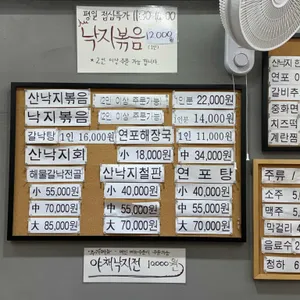 평일 점심특가 11:30-16:00
낙지볶음 12,000원
(1인)
*2인 이상 주문 가능 합니다.
산낙지볶음 2인 이상 주문가능 1인분 22,000원
낙지볶음 1인분 14,000원
갈낙탕 1인 16,000원 연포해장국 1인 11,000원
산낙지회 小 18,000원 中 34,000원
해물갈낙전골 산낙지철판 연포탕
小 55,000원 小 40,000원 小 40,000원
中 70,000원 中 55,000원 中 55,000원
大 85,000원 大 70,000원 大 70,000원
야채낙지전 10000원
산낙지
연포
갈비
중화면
치즈떡
계란찜
주류 /
소주 5,
맥주 5,
막걸
음료수 2
청하 6